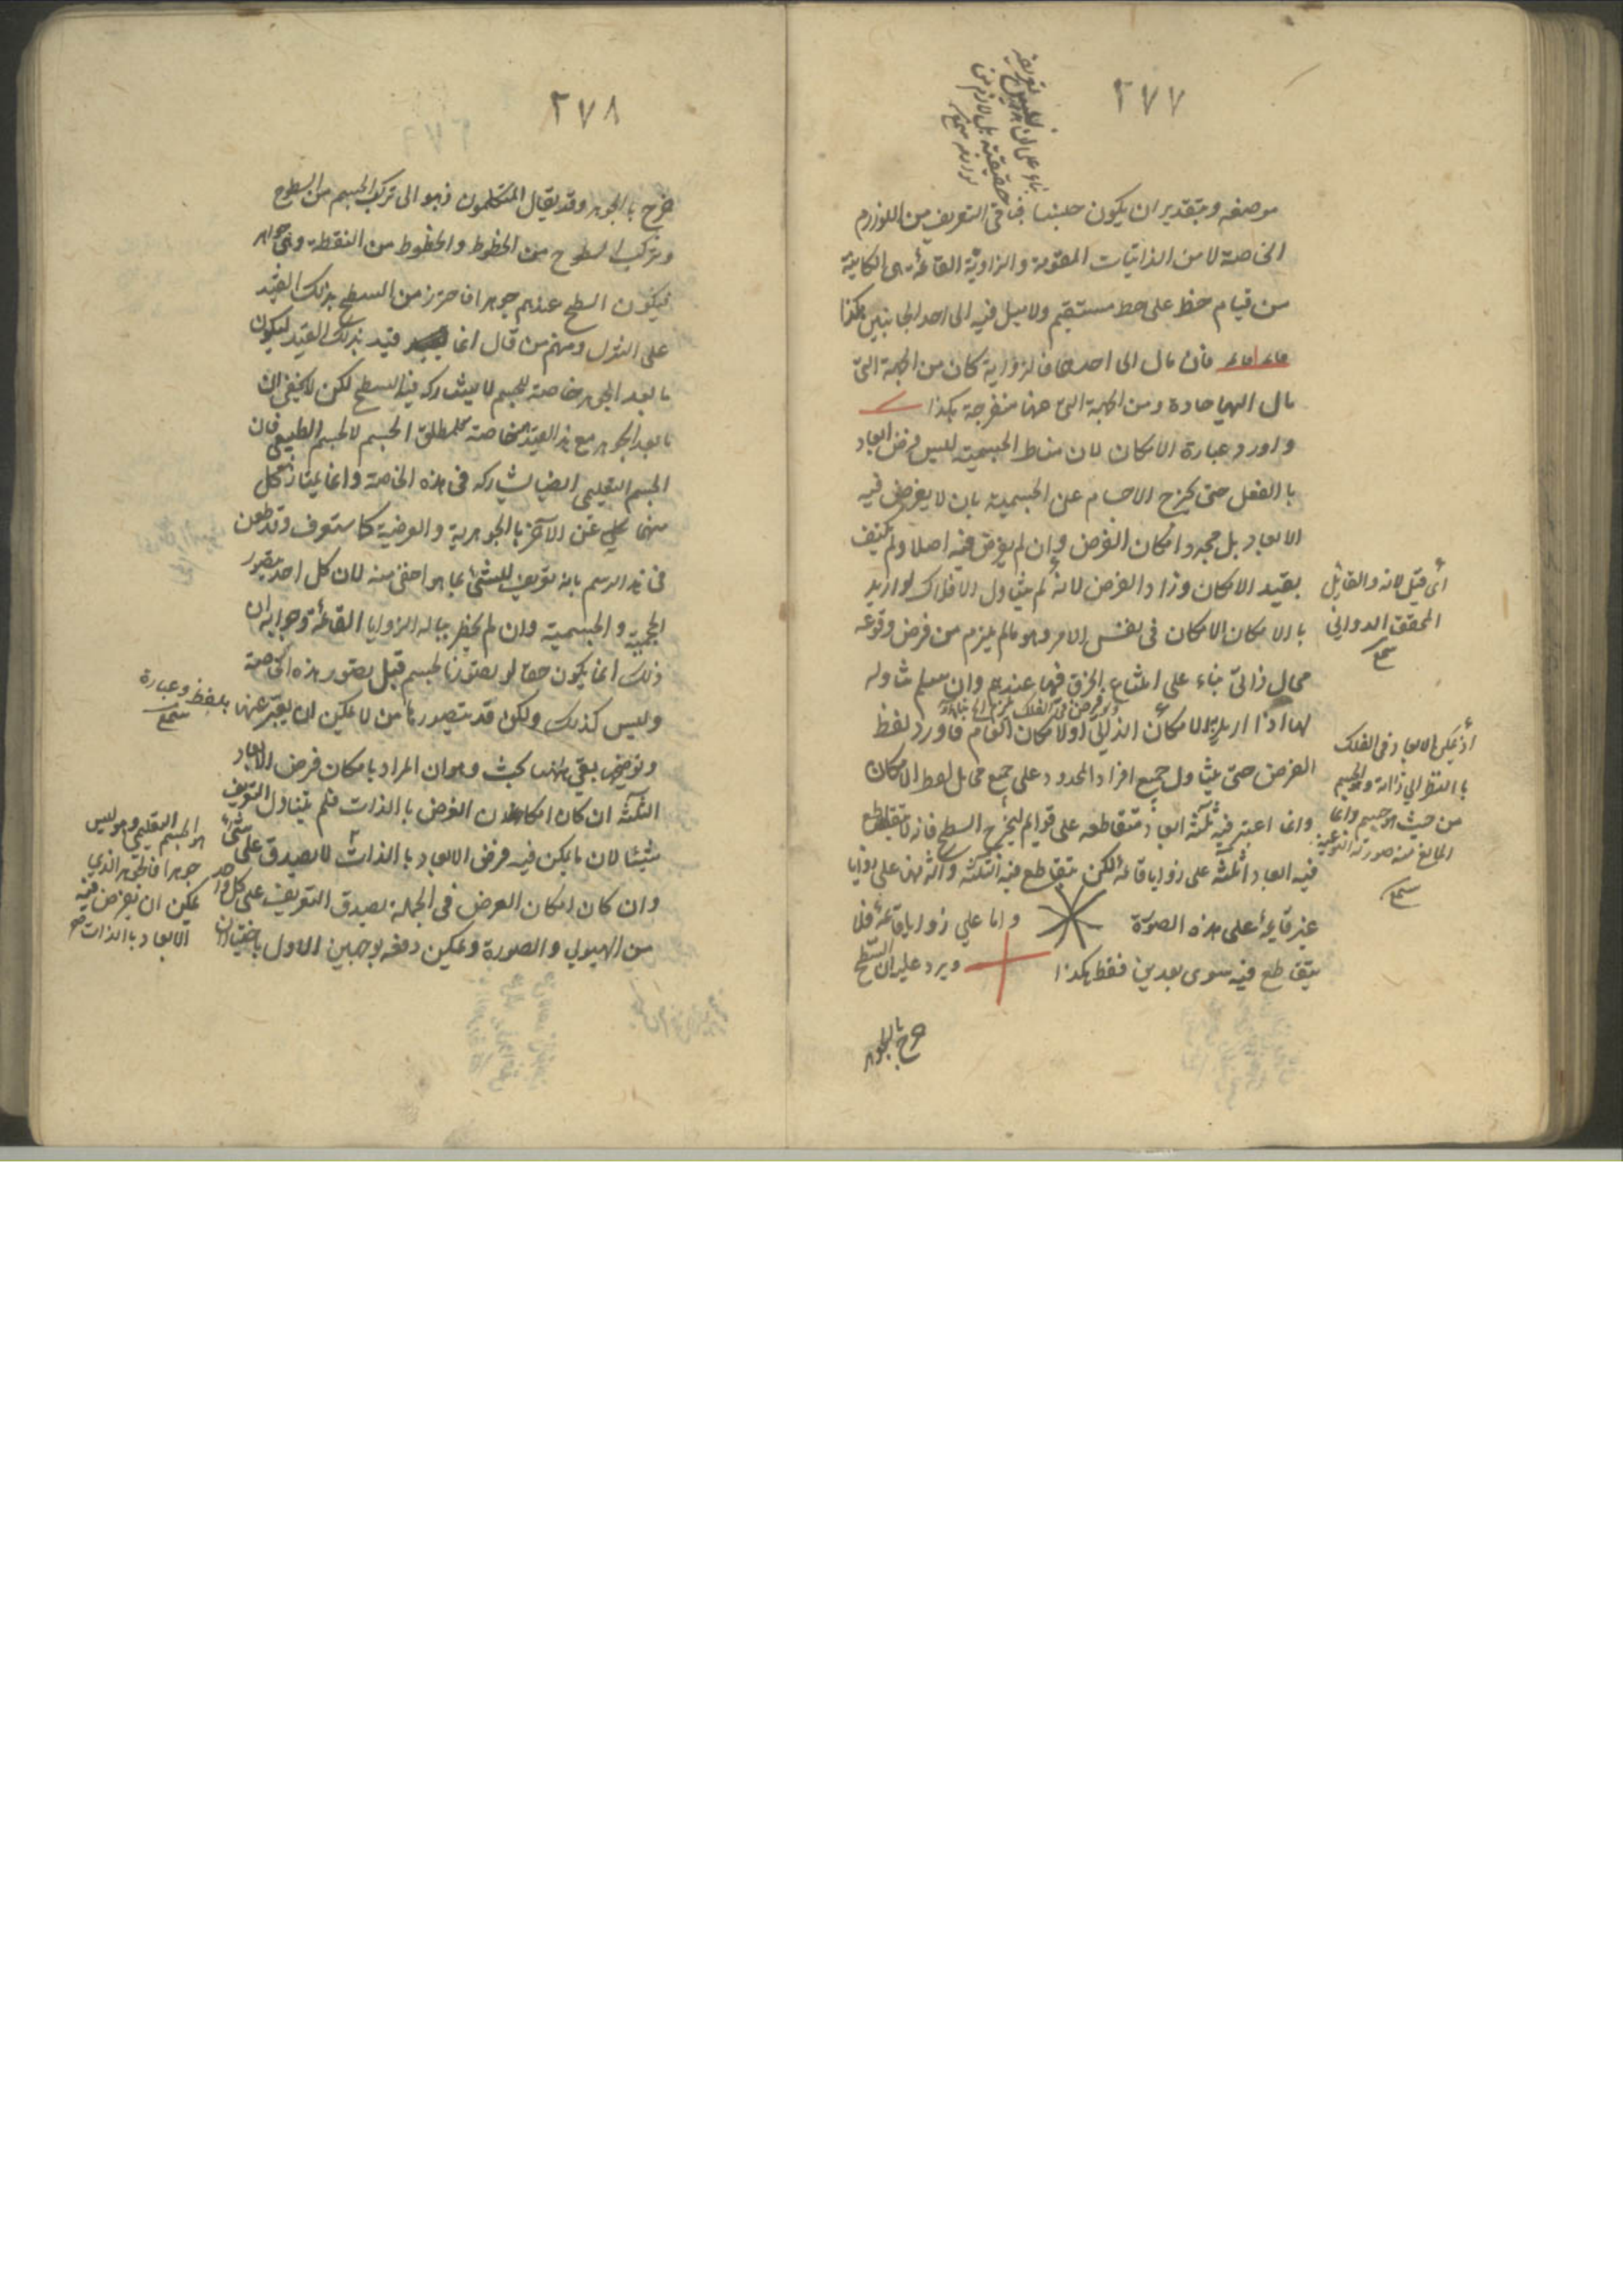 ٢٧٧
موضعه وبتقدير ان يكون جنسا فباقى التعريف من اللوازم
الخاصة لا من الذاتيات المقومة والزاوية القائمة هى الكاينة
من قيام خط على خط مستقيم ولا ميل فيه الى احد الجانبين هكذا
فان مال الى احدهما فالزاوية كان من الجهة التى
مال اليها حادة ومن الجهة التى عنها منفرجة هكذا
واورد عبارة الامكان لان مناط الجسمية ليس فرض ابعاد
بالفعل حتى يخرج الاجسام عن الجسمية بان لا يفرض فيه
الابعاد بل مجرد امكان الفرض وان لم يفرض فيه اصلا ولم يكتف
بقيد الامكان وزاد الفرض لانه لم يتناول الافلاك لو اريد
بالامكان الامكان فى نفس الامر وهو ما لم يلزم من فرض وقوعه
محال ذاتى بناء على امتناع الخرق فيها عندهم وان سلم تناوله
لها اذا اريد بالامكان الذاتى او لامكان العام فاورد لفظ
الفرض حتى يتناول جميع افراد المحدود على جميع محامل لفظ الامكان
وانما اعتبر فيه ثلثة ابعاد متقاطعه على قوايم ليخرج السطح فانه لا يتقاطع
فيه ابعاد ثلثة على زوايا قائمة لكن يتقاطع فيه الثلثة والاثنان على زوايا
غير قايمة على هذه الصورة واما على زوايا قائمة فلا
يتقاطع فيه سوى بعدين فقط هكذا ويرد عليه ان السطح
خرج بالجوهر
اى قيل لانه والقايل
المحقق الدوانى
سمع
اذ يمكن الابعاد فى الفلك
بالنظر الى ذاته والجسم
من حيث هو جسم وانما
المانع منه صورته النوعية
سمع
٢٧٨
خرج بالجوهر وقد يقال المتكلمون ذهبوا الى تركب الجسم من السطوح
وتركب السطوح من الخطوط والخطوط من النقطة وهى جواهر
فيكون السطح عندهم جوهرا فاحترز من السطح بذلك القيد
على التنزل ومنهم من قال انما قيد بذلك القيد ليكون
ما بعد الجوهر خاصة للجسم لا يشاركه فيها السطح لكن لا يخفى ان
ما بعد الجوهر مع هذا القيد خاصة لمطلق الجسم لا لجسم الطبيعى فان
الجسم التعليمى ايضا يشاركه فى هذه الخاصة وانما يمتاز كل
منهما عن الآخر بالجوهرية والعرضية كما ستعرف وقد طعن
فى هذا الرسم بانه تعريف للشئ بما هو اخفى منه لان كل احد يتصور
الجسم والجسمية وان لم يخطر بباله الزوايا القائمة وجوابه ان
ذلك انما يكون حقا لو تصورنا لجسم قبل تصور هذه الخاصة
وليس كذلك ولكن قد يتصورها من لا يمكن ان يعبر عنها بلفظ وعبارة
سمع
بقى ههنا بحث وهو ان المراد بامكان فرض الابعاد
الثلثة ان كان امكان الفرض بالذات فلم يتناول التعريف
شيئا لان ما يمكن فيه فرض الابعاد بالذات لا يصدق على شئ
وان كان امكان الفرض فى الجملة يصدق التعريف على كل واحد
من الهيولى والصورة ويمكن دفعه بوجهين الاول باختيار ان
هو الجسم التعليمى وهو ليس
جوهرا فالجوهر الذى
يمكن ان يفرض فيه
الابعاد بالذات